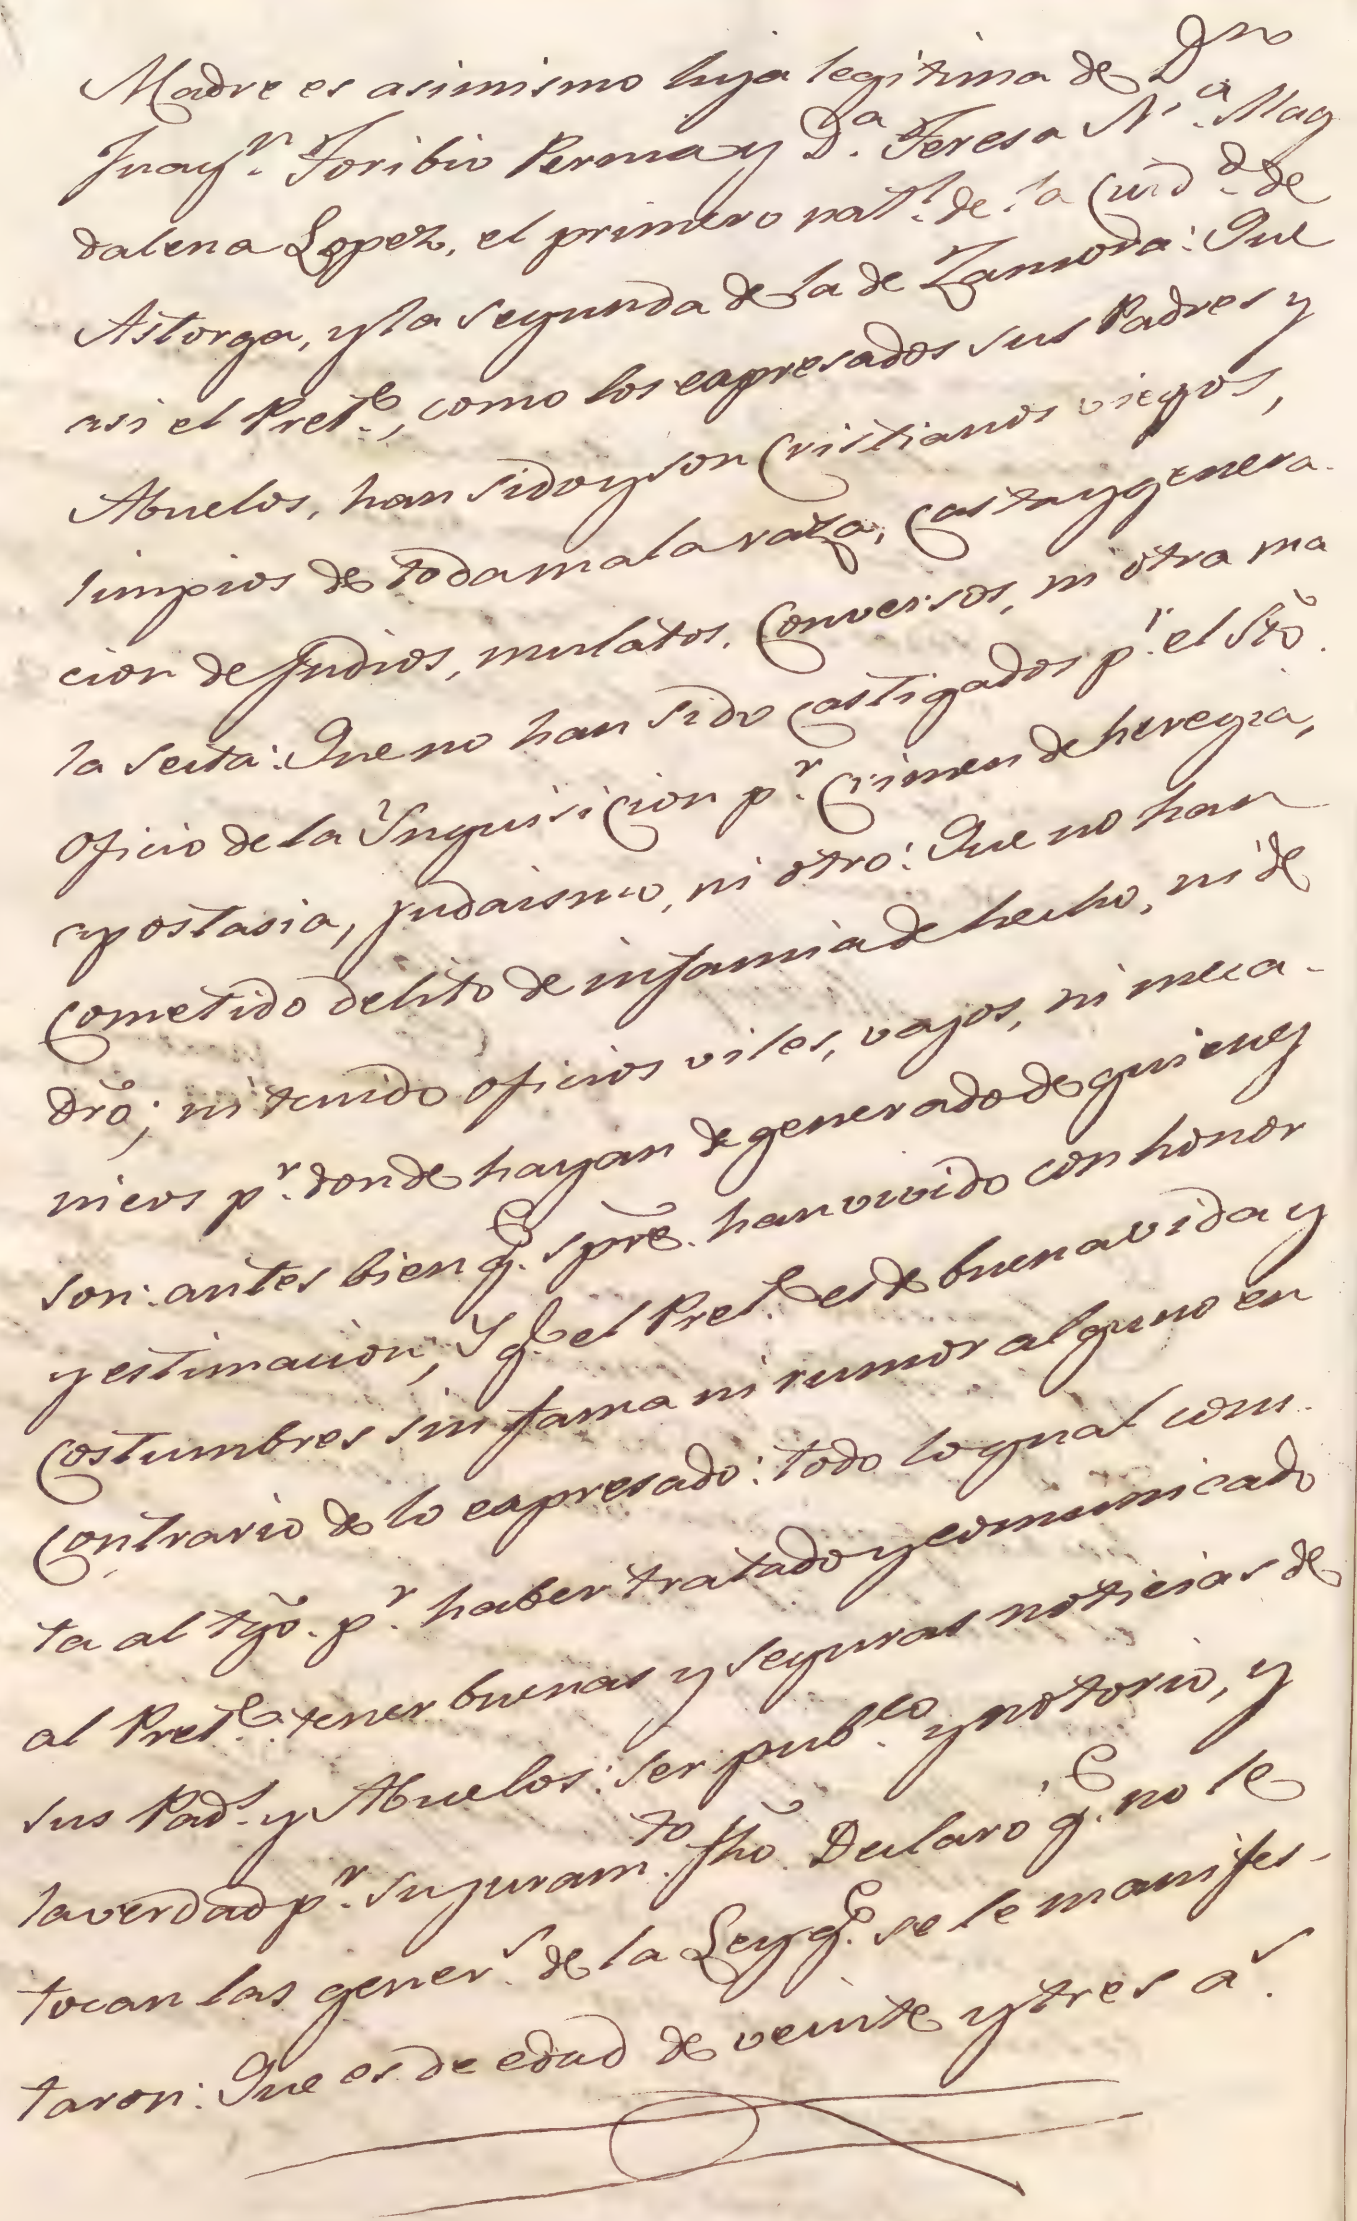 Madre es asimismo hija legitima de Dn
Juaqn. Toribio Perma y Da. Teresa Ma. Mag
dalena Lopez, el primero natl. de la Ciudd. de
Astorga, y la segunda de la de Zamora: Que
asi el Prete., como los expresados sus Padres y
Abuelos, han sido y son Cristianos viejos,
limpios de toda mala raza, casta y genera-
cion de Judios, mulatos, Conversos, ni otra ma
la secta: Que no han sido castigados pr. el Sto.
Oficio de la Inquisicion pr. Crimen de heregia,
apostasia, judaismo, ni otro: Que no han
cometido delito de infamia de hecho, ni de
dro; ni tenido oficios viles, vajos, ni meca-
nicos pr. donde hayan degenerado de quienes
son: antes bien qe. spre. han vivido con honor
y estimacion; Y qe. el Prete. es de buena vida y
costumbres sin fama ni rumor alguno en
contrario de lo expresado: todo lo qual cons-
ta al tgo. pr. haber tratado y comunicado
al Prete. tener buenas y seguras noticias de
sus Pads. y Abuelos: ser pubco. y notorio, y
la verdad pr. su juramto. fho. Declaró qe. no le
tocan las geners. de la Ley qe. se le manifes-
taron: Que es de edad de veinte y tres as.